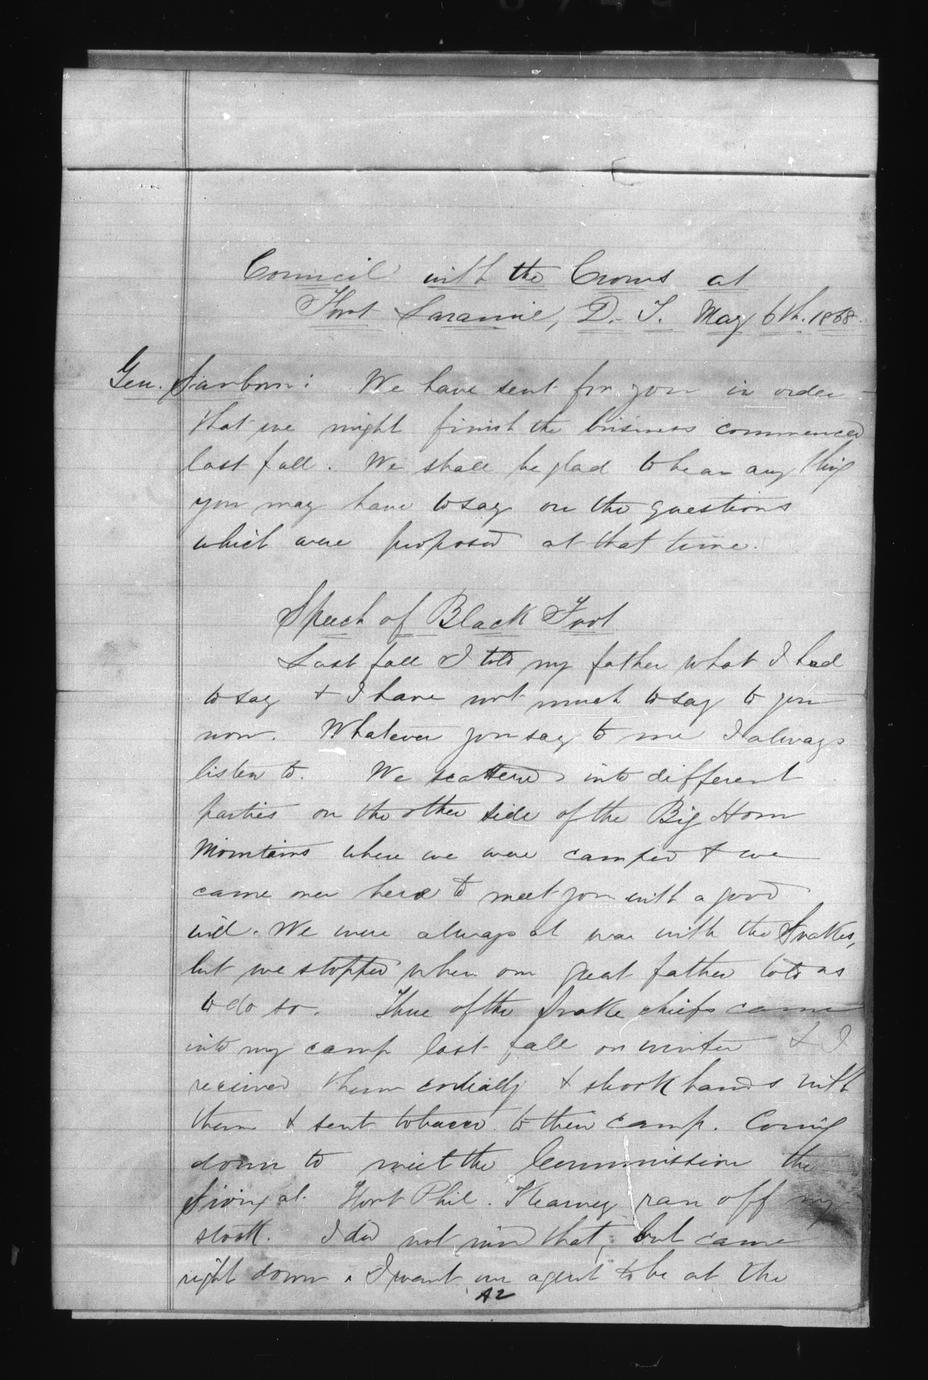 Council with the Crows at
Fort Laramie, D. T. May 6th. 1868.
Gen. Sanborn: We have sent for you in order
that we might finish the business commenced
last fall. We shall be glad to hear any thing
you may have to say on the questions
which were proposed at that time.
Speech of Black Foot
Last fall I told my father what I had
to say & I have not much to say to you
now. Whatever you say to me I always
listen to. We scattered into different
parties on the other side of the Big Horn
Mountains where we were camped & we
came over here to meet you with a good
will. We were always at war with the Snakes,
but we stopped when our great father told us
to do so. Three of the Snake chiefs came
into my camp last fall or winter & I
received them cordially & shook hands with
them & sent tobacco to their camp. Coming
down to meet the Commission the
Sioux at Fort Phil. Kearney ran off my
stock. I did not mind that, but came
right down. I want our agent to be at the
A2